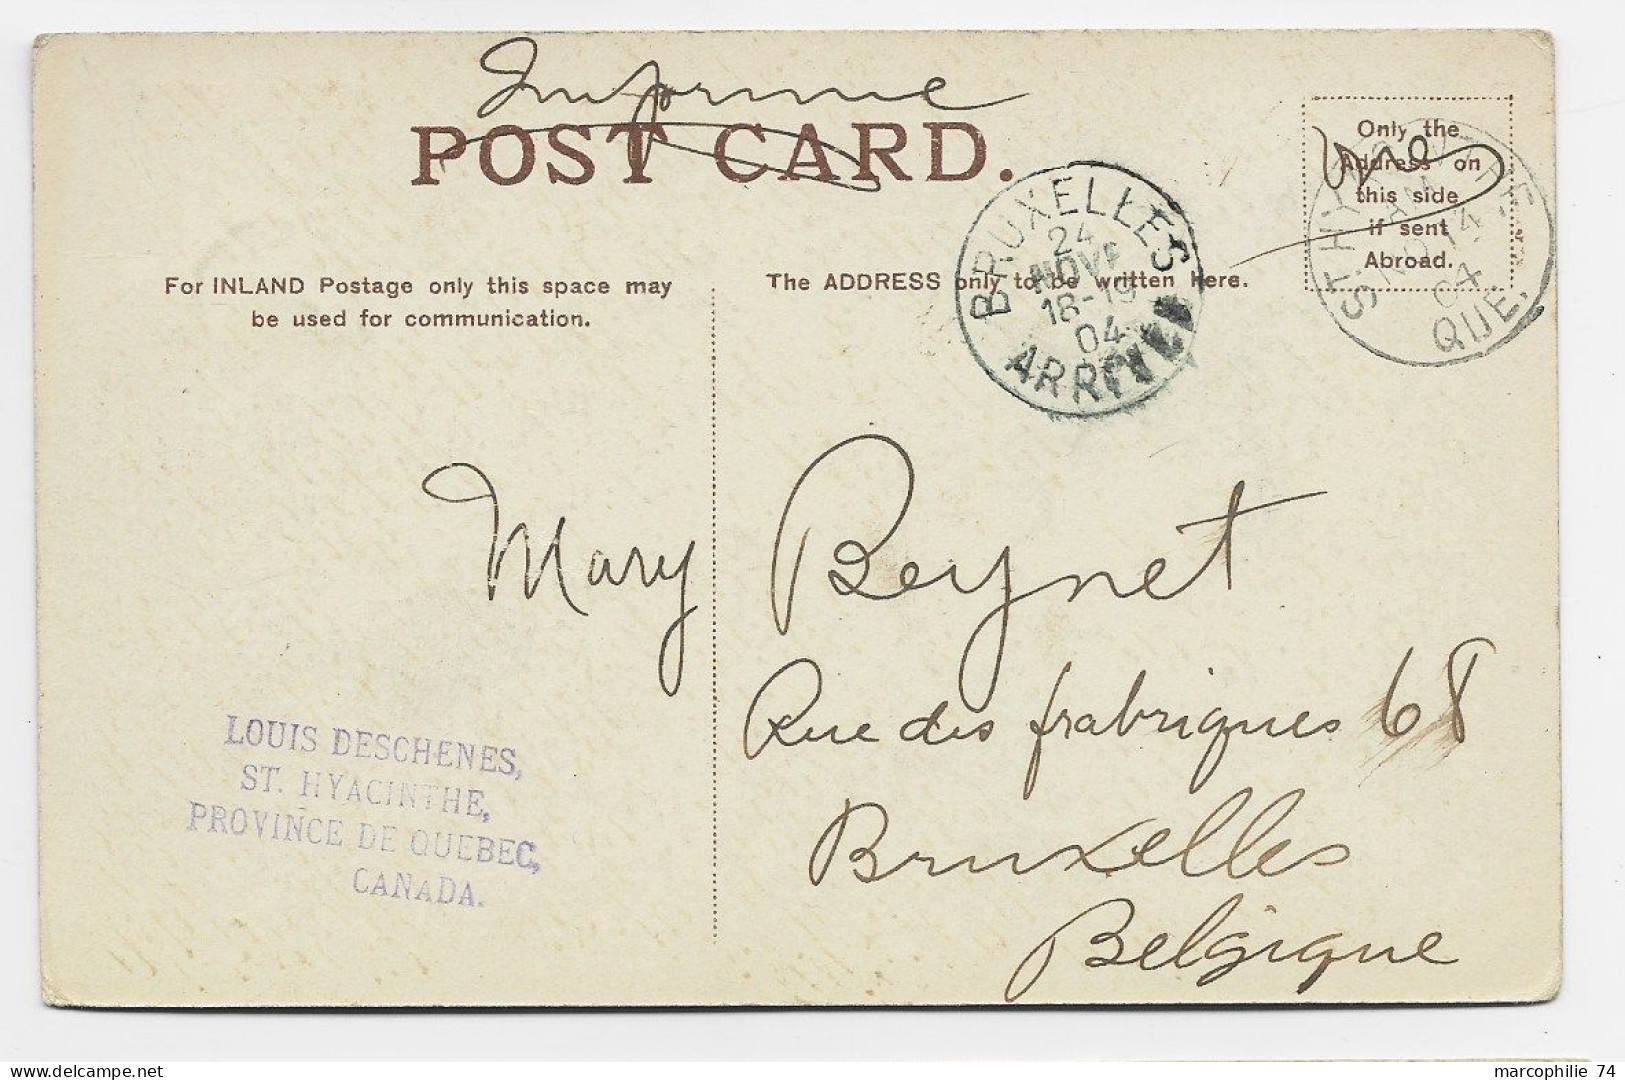 Imprimé
POST CARD.
Only the
Address on
this side
if sent
Abroad.
ST. HYACINTHE
AM
NO 14
04
QUE.
BRUXELLES
24
NOVE
18-19
04
ARRIVEE
For INLAND Postage only this space may
be used for communication.
The ADDRESS only to be written here.
Mary Beynet
Rue des frabriques 68
Bruxelles
Belgique
LOUIS DESCHENES,
ST. HYACINTHE,
PROVINCE DE QUEBEC,
CANADA.
marcophilie 74